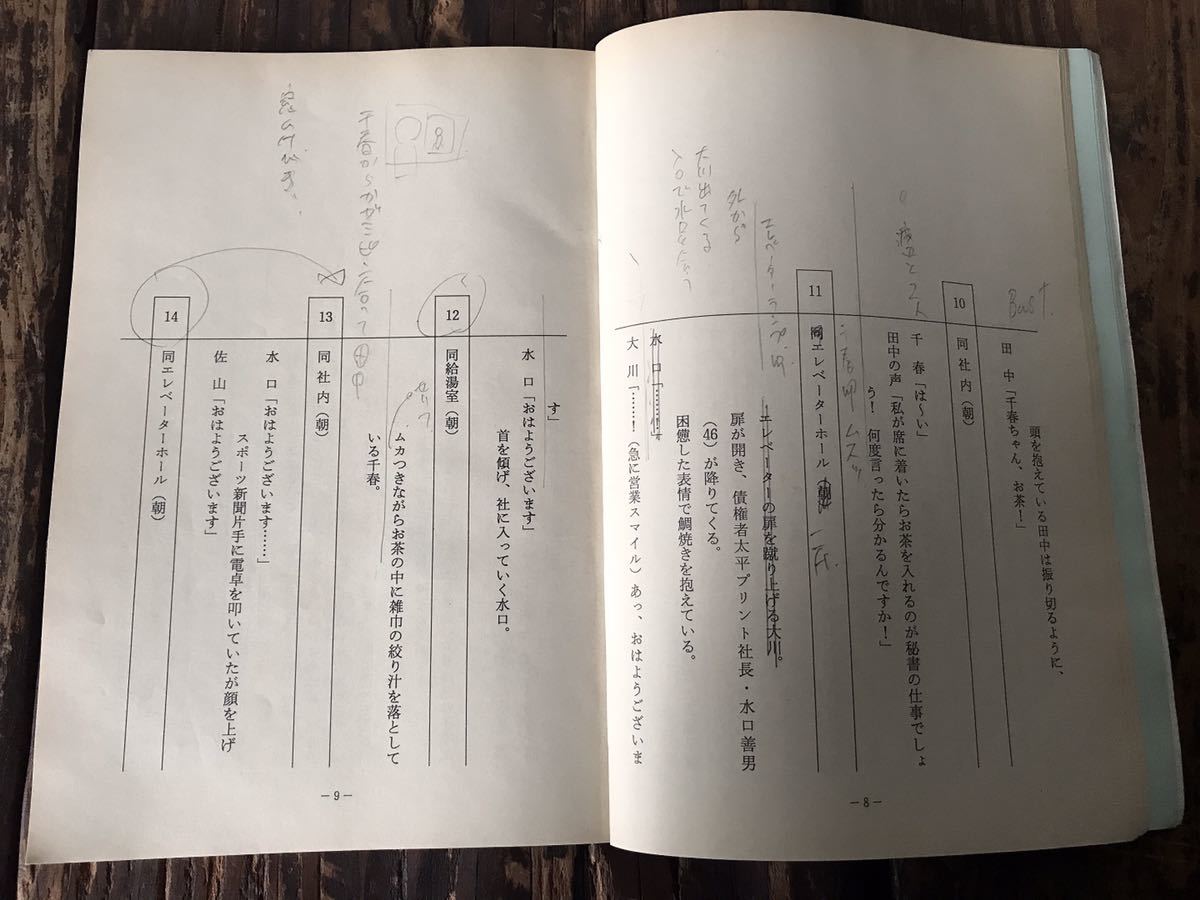 頭を抱えている田中は振り切るように、
田　中「千春ちゃん、お茶！」
Bust
10　同　社内（朝）
千　春「は〜い」
田中の声「私が席に着いたらお茶を入れるのが秘書の仕事でしょ
う！　何度言ったら分かるんですか！」
千春 ムスッ
11　同エレベーターホール（朝）
エレベーターの扉を蹴り上げる大川。
扉が開き、債権者太平プリント社長・水口善男
（46）が降りてくる。
困憊した表情で鯛焼きを抱えている。
水　口「………」
大　川「……！（急に営業スマイル）あっ、おはようございま
エレベーターランプ
外から
大川出てくる
－8－
す」
水　口「おはようございます」
首を傾げ、社に入っていく水口。
12　同給湯室（朝）
セリフ
ムカつきながらお茶の中に雑巾の絞り汁を落として
いる千春。
13　同　社内（朝）
水　口「おはようございます……」
スポーツ新聞片手に電卓を叩いていたが顔を上げ
佐　山「おはようございます」
14　同エレベーターホール（朝）
－9－